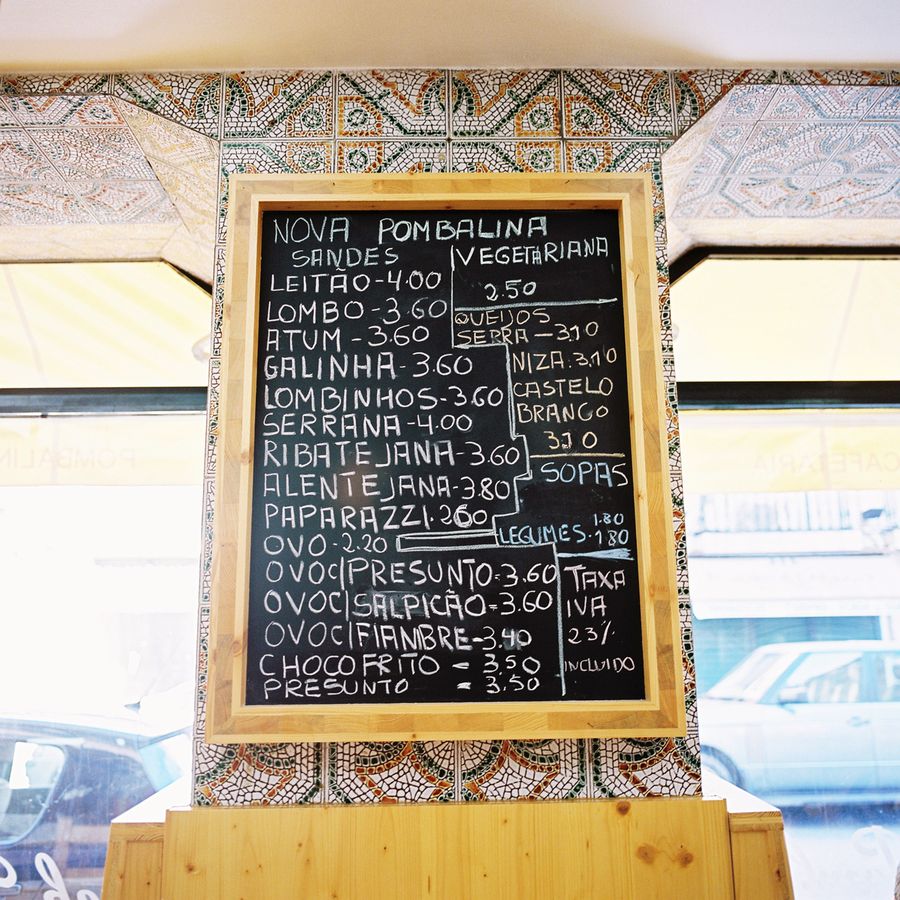 NOVA POMBALINA
SANDES
LEITÃO-4.00
LOMBO-3.60
ATUM-3.60
GALINHA-3.60
LOMBINHOS-3.60
SERRANA-4.00
RIBATEJANA-3.60
ALENTEJANA-3.80
PAPARAZZI.2.60
OVO-2.20
OVOC|PRESUNTO-3.60
OVOC|SALPICÃO=3.60
OVOC|FIAMBRE-3.40
CHOCO FRITO - 3.50
PRESUNTO - 3.50
VEGETARIANA
2.50
QUEIJOS
SERRA-3.10
NIZA.3.10
CASTELO
BRANGO
3.10
SOPAS
1.80
LEGUMES.1.80
TAXA
IVA
23%
INCLUIDO